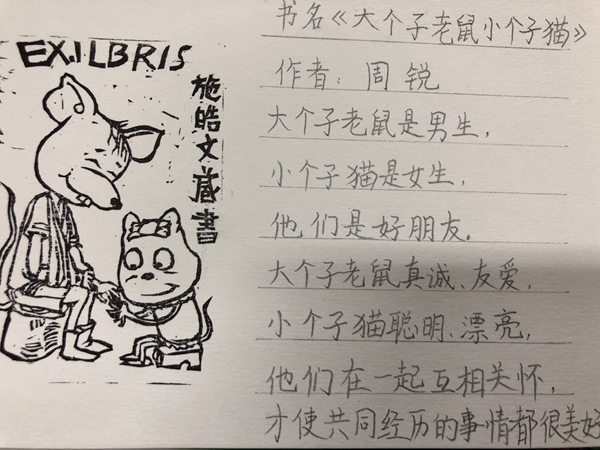 EXLIBRIS
施皓文藏書
书名《大个子老鼠小个子猫》
作者：周锐
大个子老鼠是男生，
小个子猫是女生，
他们是好朋友。
大个子老鼠真诚、友爱，
小个子猫聪明、漂亮，
他们在一起互相关怀，
才使共同经历的事情都很美好